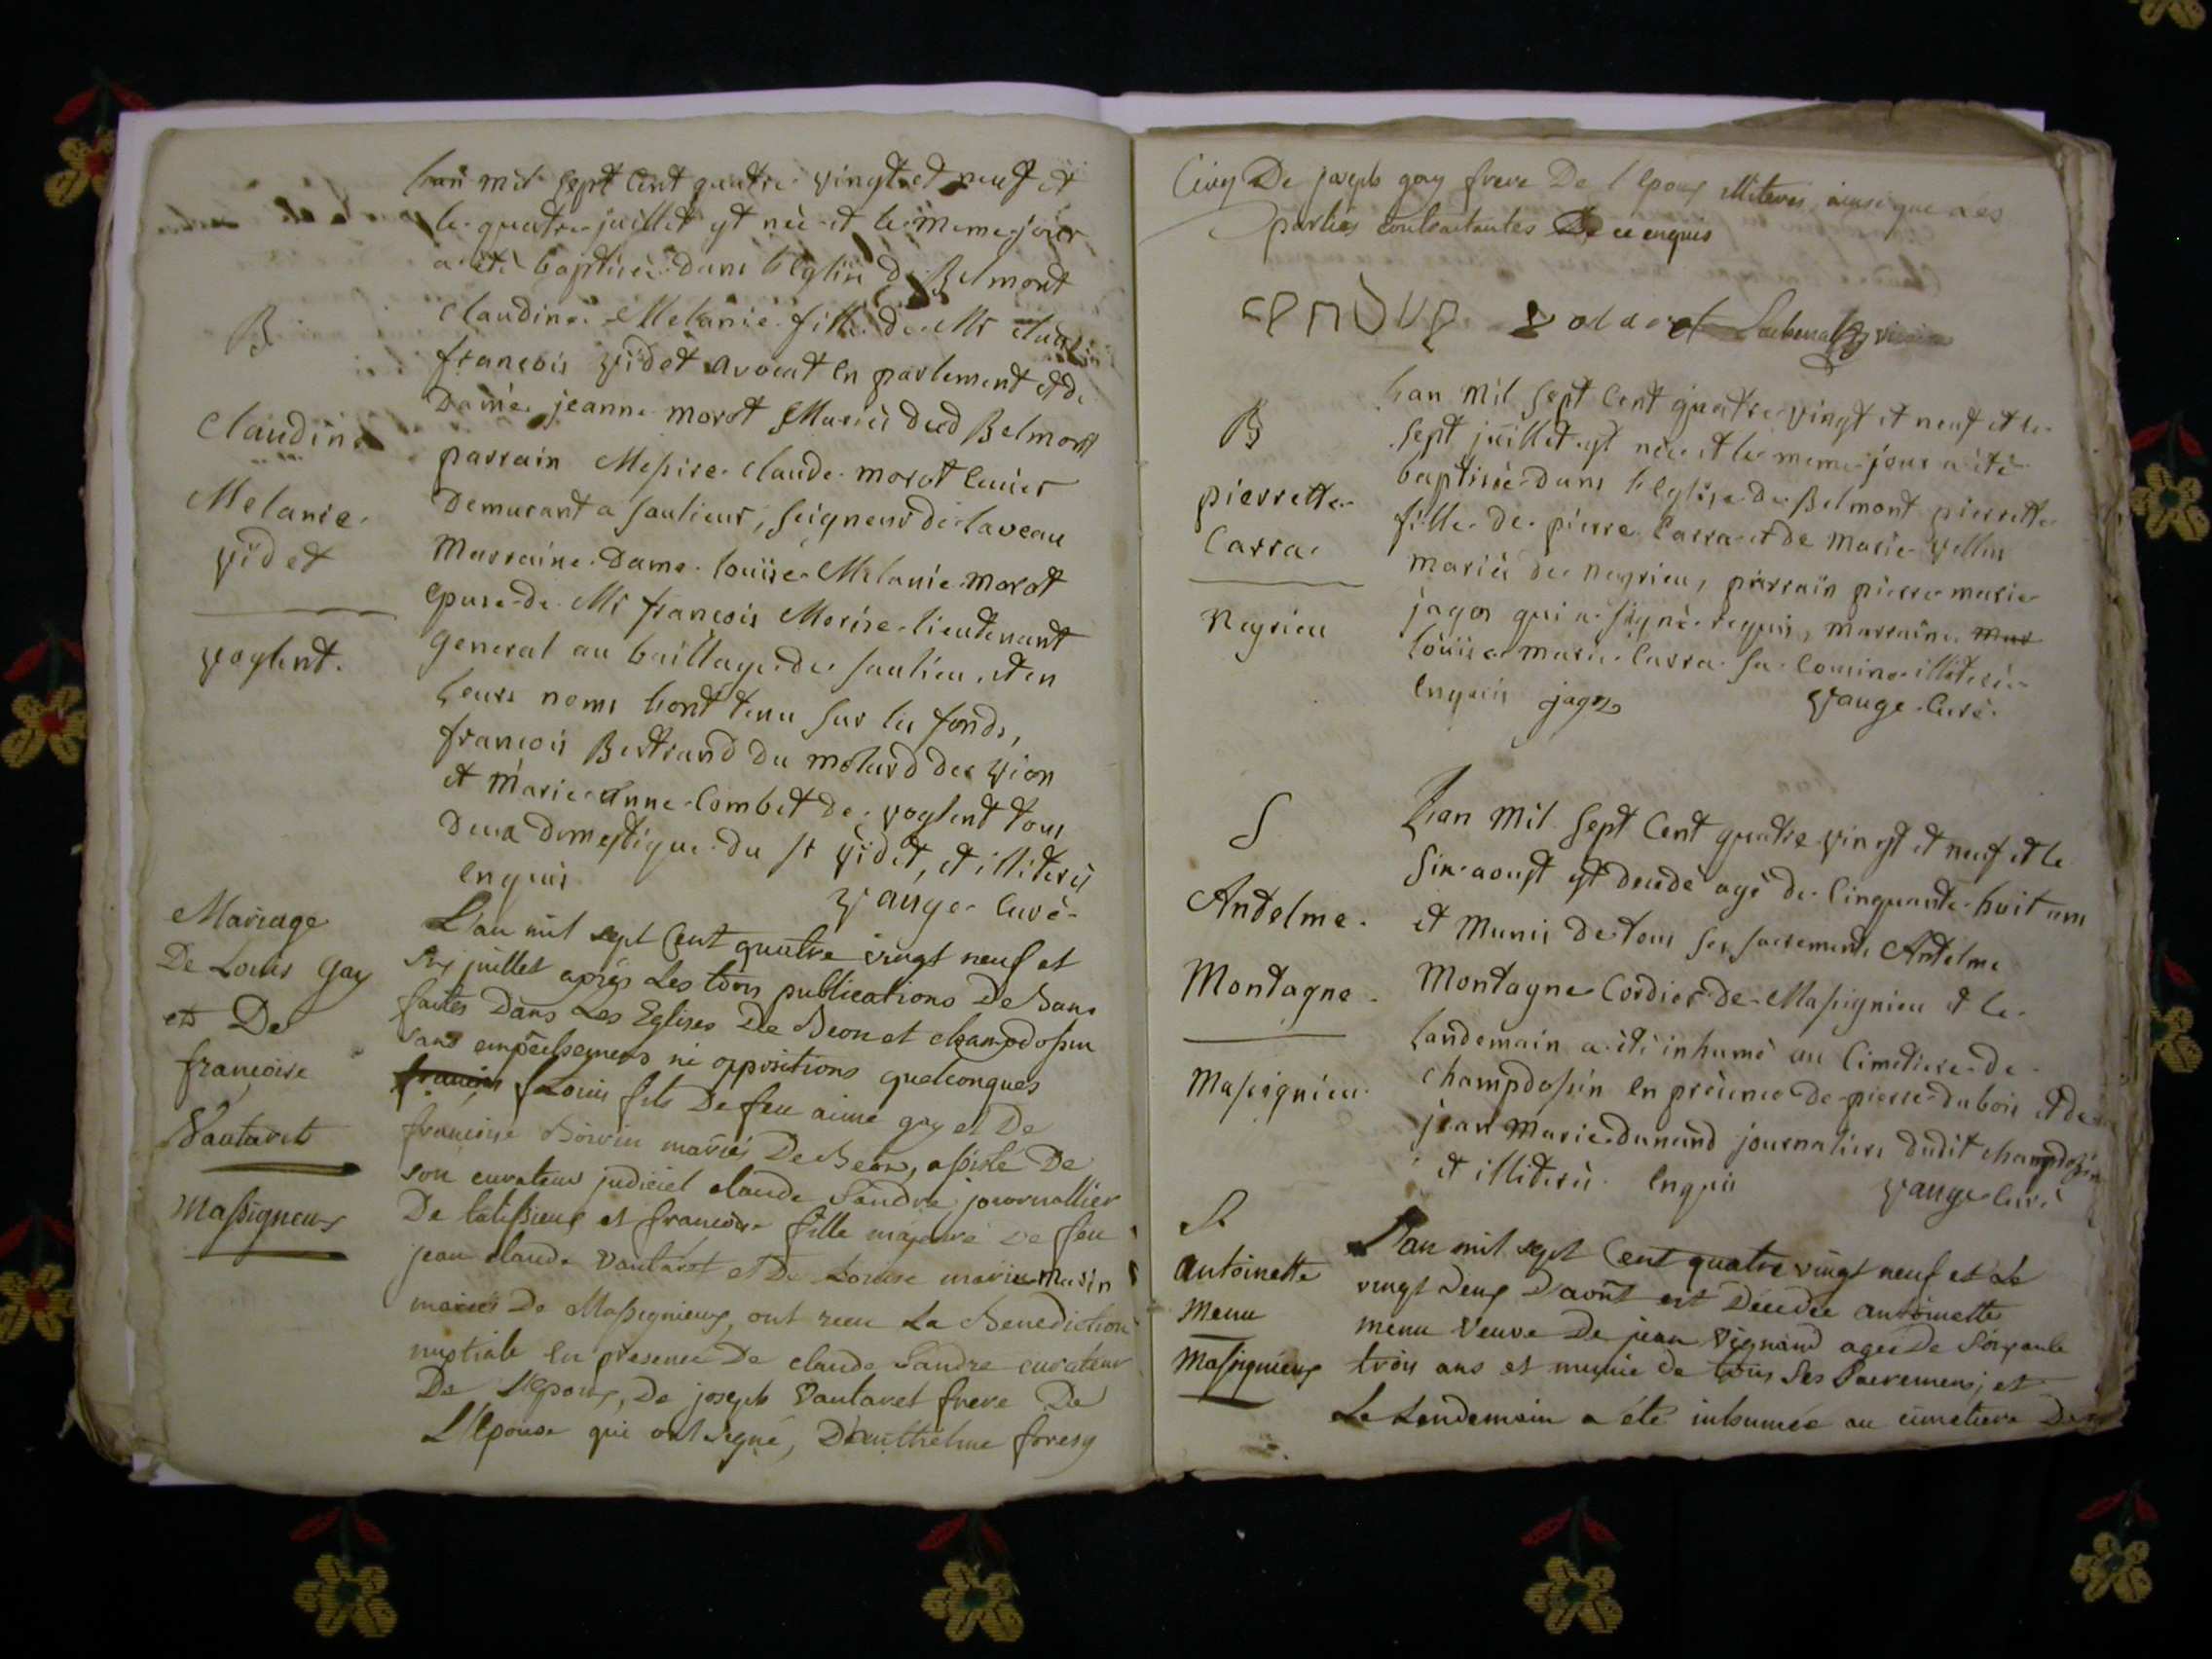 B
Claudine
Melanie
videt
voglent.
lan mil sept cent quatre vingt et neuf et
le quatre juillet est neè et le meme jour
a etè baptiseè dans leglise de Belmont
claudine Melanie fille de Mr claude
francois videt avocat en parlement et de
Dame jeanne morot Mariès dud Belmont
parrain Messire claude morot ecuier
demurant a saulieur, seigneur de laveau
Marraine Dame louise Melanie morot
epuse de Mr francois Merise lieutenant
general au baillage de saulieu, et en
leurs noms lont tenu sur les fonds,
francois Bertrand du molard de vion
et Marie anne Combet de voglent tous
deux domestique du sr videt, et illiterès
enquis
vauge curè
Mariage
De Louis Gay
et De
francoise
Vautaret
Massigneux
L'an mil sept Cent quatre vingt neuf et
six juillet aprés Les trois publications De Bans
faites Dans Les Eglises De Beon et champdossin
sans empêchemens ni oppositions quelconques
francois Louis fils De feu aimé gay et De
francoise Boivin mariés De Beon, assisté De
son curateur judiciel claude Sandre journallier
De talissieux et francoise fille majeure De feu
jean claude Vautaret et De Louise marie masin
mariés De Massignieux, ont recu La Benediction
nuptiale en presence De claude Sandre curateur
De L'Epoux, De joseph Vautaret frere De
L'Epouse qui ont signé, D'anthelme forest
Civy De joseph gay frere De l'Epoux illiterés, ainsi que Les
parties contractantes De ce enquis
B
pierrette
Carra
Neyrieu
lan mil sept cent quatre vingt et neuf et le
sept juillet est neè et le meme jour a etè
baptiseè dans leglise de Belmont pierrette
fille de pierre Carra et de Marie vellin
mariès de neyrieu, parrain pierre marie
jagos qui a signè requis, marraine mar
loüise marie Carra sa cousine illiterèe
enquis jagos vauge curè
S
Antelme
Montagne
Massignieu
Lan mil sept cent quatre vingt et neuf et le
six aoust est decedè agè de cinquante huit ans
et Munis de tous ses sacrements Antelme
Montagne Cordier de Massignieu et le
landemain a etè inhumè au Cimetiere de
champdossin en prèsence de pierre dubois et de
jean marie dunand journaliers dudit champdossin
et illiterès enquis vauge Curè
S.
antoinette
Menu
Massignieux
L'an mil sept Cent quatre vingt neuf et Le
vingt Deux D'août est Décédée antoinette
menu Veuve De jean Vignand agée De soixante
trois ans et munie de tous ses Sacremens, et
Le Lendemain a été inhumée au cimetiere De